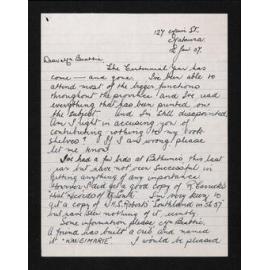 127 Main St.
Mataura
2 Jan 57.
Dear Mr Beattie,
The Centennial Year has
come — and gone. I've been able to
attend most of the bigger functions
throughout the province and I've read
everything that has been printed on
the subject — and I'm still disappointed.
Am I right in accusing you of
contributing nothing to my book
shelves? If I am wrong please
let me know.
I've had a few bids at Bethunes this last
year but have not been successful in
getting anything of any importance.
However I did get a good copy of
Hall "Records of
get a copy of Roberts' Southland in 1857
but have seen nothing of it, recently.
Some information please Mr Beattie.
A friend has built a crib and named
it "WAKEIMARIE". I would be pleased